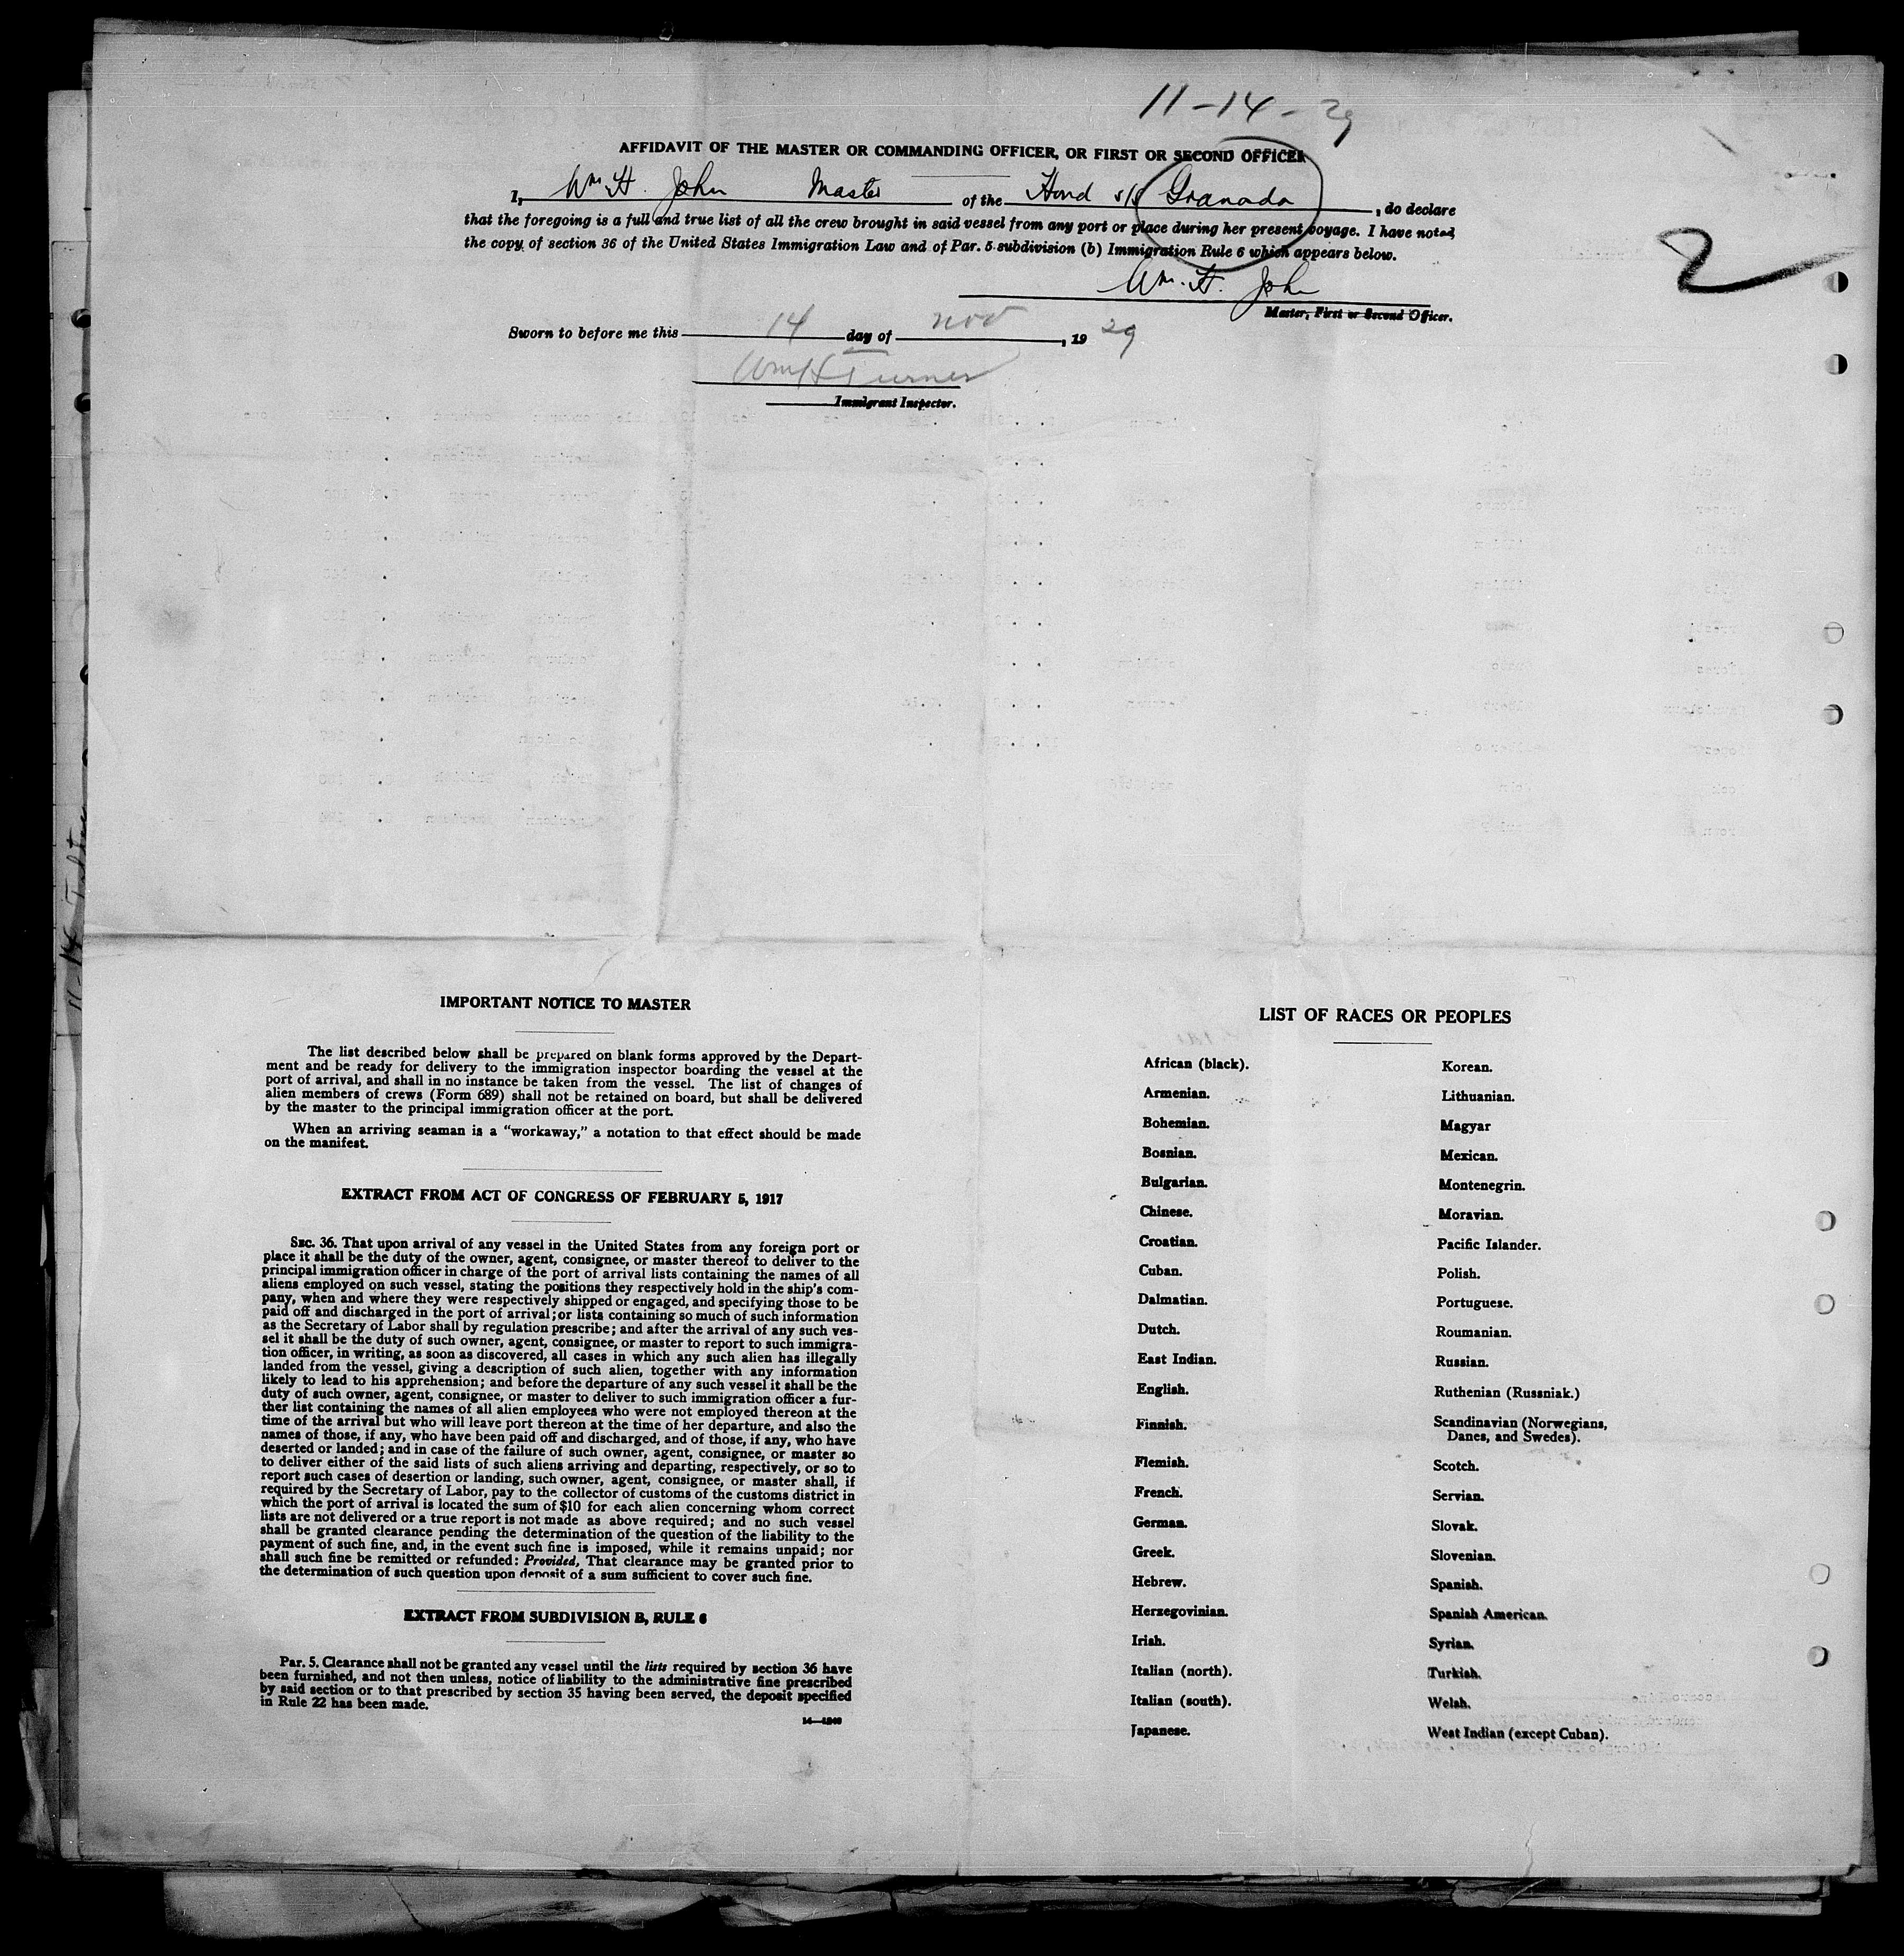 11-14-29
AFFIDAVIT OF THE MASTER OR COMMANDING OFFICER, OR FIRST OR SECOND OFFICER
I, Wm H. John Master of the Hond s/s Granada, do declare
that the foregoing is a full and true list of all the crew brought in said vessel from any port or place during her present voyage. I have noted
the copy of section 36 of the United States Immigration Law and of Par. 5 subdivision (b) Immigration Rule 6 which appears below.
2
Wm. H. John
Master, First or Second Officer.
Sworn to before me this 14 day of Nov, 1929
Wm H Turner
Immigrant Inspector.
IMPORTANT NOTICE TO MASTER
The list described below shall be prepared on blank forms approved by the Depart-
ment and be ready for delivery to the immigration inspector boarding the vessel at the
port of arrival, and shall in no instance be taken from the vessel. The list of changes of
alien members of crews (Form 689) shall not be retained on board, but shall be delivered
by the master to the principal immigration officer at the port.
When an arriving seaman is a "workaway," a notation to that effect should be made
on the manifest.
EXTRACT FROM ACT OF CONGRESS OF FEBRUARY 5, 1917
SEC. 36. That upon arrival of any vessel in the United States from any foreign port or
place it shall be the duty of the owner, agent, consignee, or master thereof to deliver to the
principal immigration officer in charge of the port of arrival lists containing the names of all
aliens employed on such vessel, stating the positions they respectively hold in the ship's com-
pany, when and where they were respectively shipped or engaged, and specifying those to be
paid off and discharged in the port of arrival; or lists containing so much of such information
as the Secretary of Labor shall by regulation prescribe; and after the arrival of any such ves-
sel it shall be the duty of such owner, agent, consignee, or master to report to such immigra-
tion officer, in writing, as soon as discovered, all cases in which any such alien has illegally
landed from the vessel, giving a description of such alien, together with any information
likely to lead to his apprehension; and before the departure of any such vessel it shall be the
duty of such owner, agent, consignee, or master to deliver to such immigration officer a fur-
ther list containing the names of all alien employees who were not employed thereon at the
time of the arrival but who will leave port thereon at the time of her departure, and also the
names of those, if any, who have been paid off and discharged, and of those, if any, who have
deserted or landed; and in case of the failure of such owner, agent, consignee, or master so
to deliver either of the said lists of such aliens arriving and departing, respectively, or so to
report such cases of desertion or landing, such owner, agent, consignee, or master shall, if
required by the Secretary of Labor, pay to the collector of customs of the customs district in
which the port of arrival is located the sum of $10 for each alien concerning whom correct
lists are not delivered or a true report is not made as above required; and no such vessel
shall be granted clearance pending the determination of the question of the liability to the
payment of such fine, and, in the event such fine is imposed, while it remains unpaid; nor
shall such fine be remitted or refunded: Provided, That clearance may be granted prior to
the determination of such question upon deposit of a sum sufficient to cover such fine.
EXTRACT FROM SUBDIVISION B, RULE 6
Par. 5. Clearance shall not be granted any vessel until the lists required by section 36 have
been furnished, and not then unless, notice of liability to the administrative fine prescribed
by said section or to that prescribed by section 35 having been served, the deposit specified
in Rule 22 has been made.
LIST OF RACES OR PEOPLES
African (black).
Armenian.
Bohemian.
Bosnian.
Bulgarian.
Chinese.
Croatian.
Cuban.
Dalmatian.
Dutch.
East Indian.
English.
Finnish.
Flemish.
French.
German.
Greek.
Hebrew.
Herzegovinian.
Irish.
Italian (north).
Italian (south).
Japanese.
Korean.
Lithuanian.
Magyar
Mexican.
Montenegrin.
Moravian.
Pacific Islander.
Polish.
Portuguese.
Roumanian.
Russian.
Ruthenian (Russniak.)
Scandinavian (Norwegians,
Danes, and Swedes).
Scotch.
Servian.
Slovak.
Slovenian.
Spanish.
Spanish American.
Syrian.
Turkish.
Welsh.
West Indian (except Cuban).